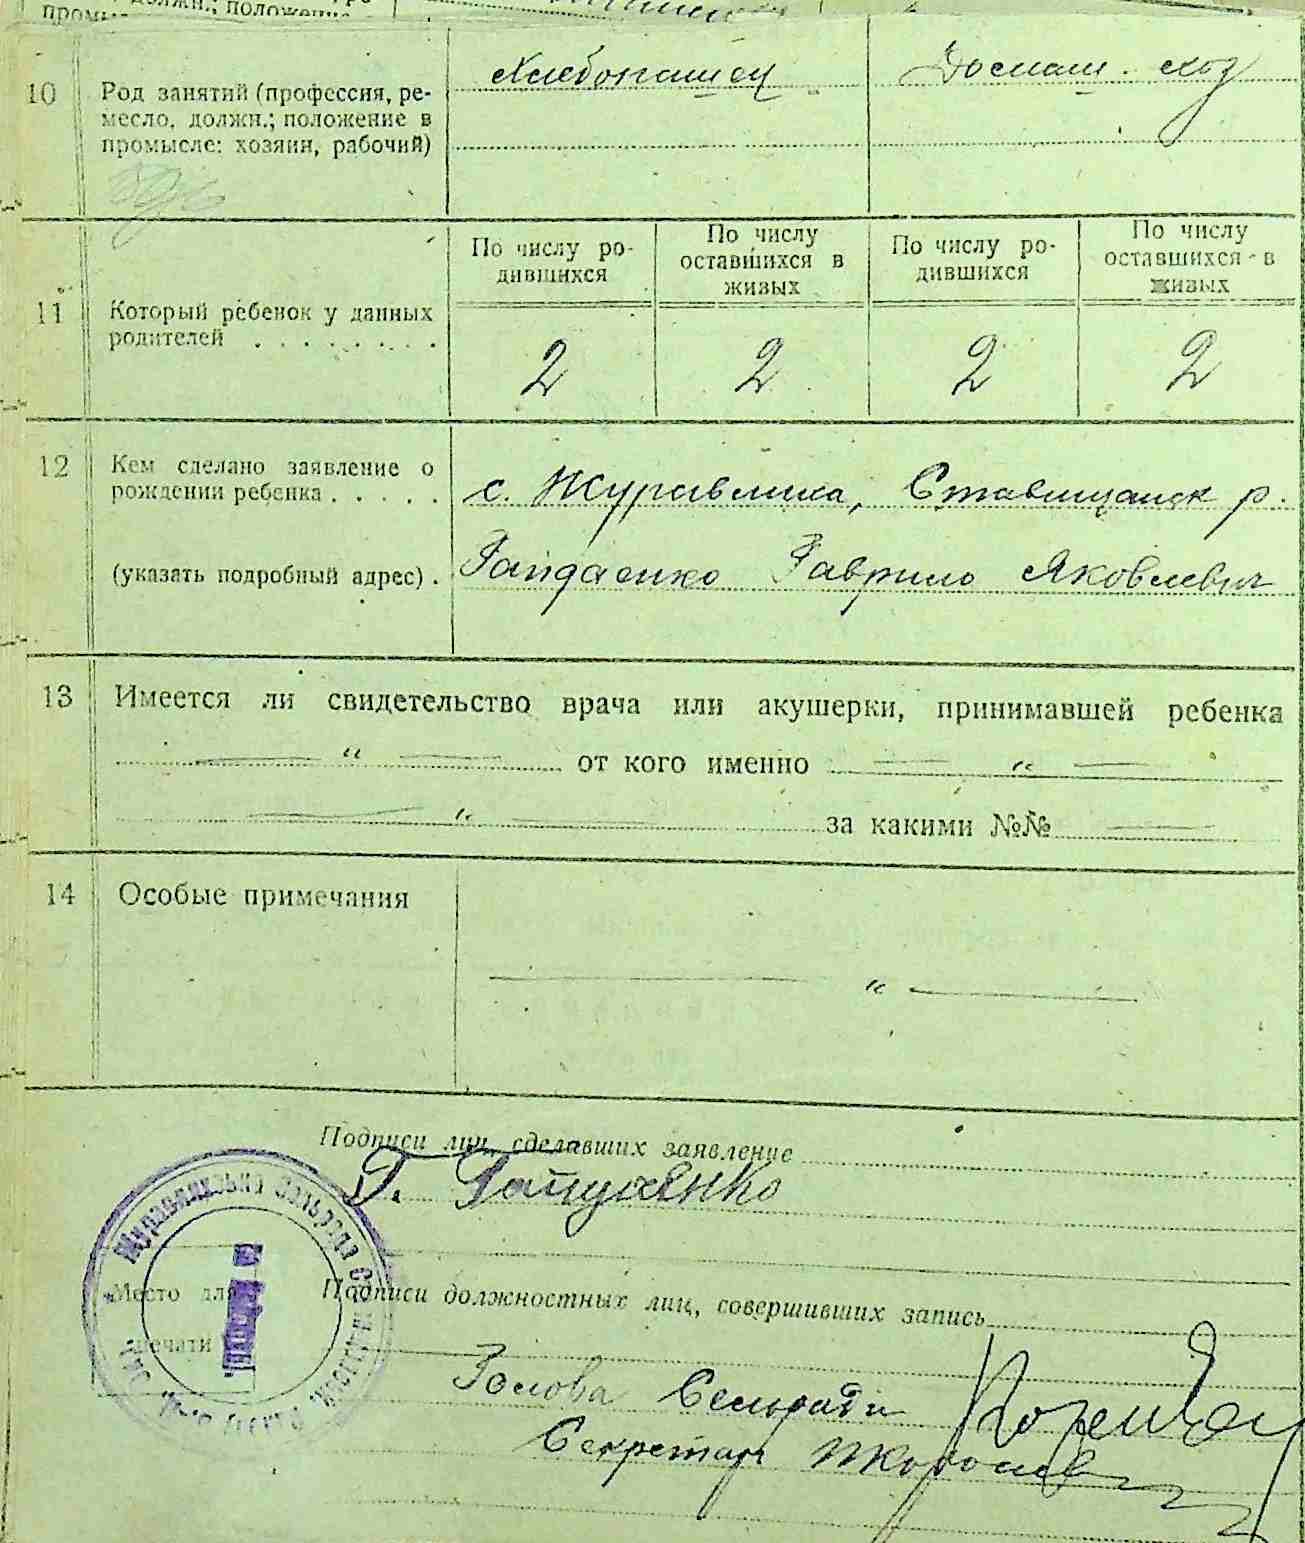 10 Род занятий (профессия, ре-
месло, должн.; положение в
промысле: хозяин, рабочий)
Хлебопашец
Домаш. хоз
По числу ро-
дившихся
По числу
оставшихся в
живых
По числу ро-
дившихся
По числу
оставшихся в
живых
11 Который ребенок у данных
родителей . . . . . . . .
2 2 2 2
12 Кем сделано заявление о
рождении ребенка . . . . .
с. Журавлиха, Ставищанск р.
(указать подробный адрес) .
Гайдаенко Гаврило Яковлевич
13 Имеется ли свидетельство врача или акушерки, принимавшей ребенка
— " — от кого именно — " —
— " — за какими №№ —
14 Особые примечания
— " —
Подписи лиц, сделавших заявление
Г. Гайдаенко
Место для
печати
Подписи должностных лиц, совершивших запись
Голова Сельради
Секретарь